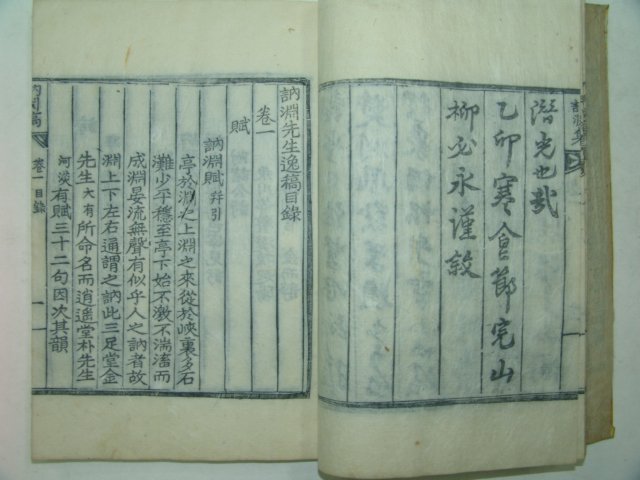 潛光也哉
乙卯寒食節完山
柳必永謹敘
訥淵先生逸稿目錄
卷一
賦
訥淵賦 幷引
亭於淵之上淵之來從於峽裏多石
灘少平穩至亭下始不激不湍滀而
成淵晏流無聲有似乎人之訥者故
淵上下左右通謂之訥此三足堂金
先生大有所命名而逍遙堂朴先生
河淡有賦三十二句因次其韻
卷一 目錄